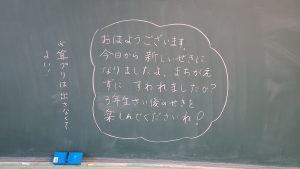 おはようございます。
今日から新しいせきに
なりましたよ。まちがえ
ずにすわれましたか？
3年生さい後のせきを
楽しんでくださいね！
※算プリは出さなくて
よい！